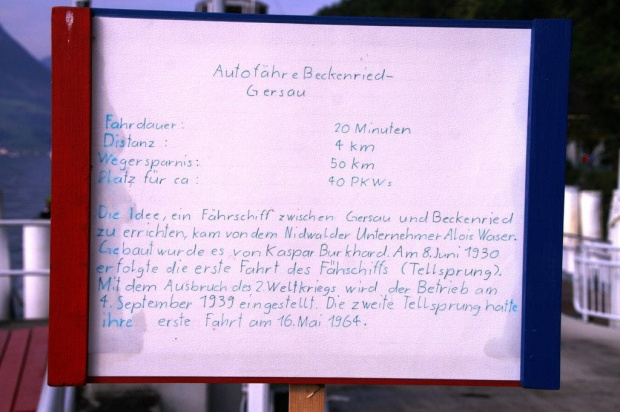 Autofähre Beckenried-
Gersau
Fahrdauer: 20 Minuten
Distanz: 4 km
Wegersparnis: 50 km
Platz für ca: 40 PKWs
Die Idee, ein Fährschiff zwischen Gersau und Beckenried
zu errichten, kam von dem Nidwalder Unternehmer Alois Waser.
Gebaut wurde es von Kaspar Burkhard. Am 8. Juni 1930
erfolgte die erste Fahrt des Fähschiffs (Tellsprung).
Mit dem Ausbruch des 2. Weltkriegs wird der Betrieb am
4. September 1939 eingestellt. Die zweite Tellsprung hatte
ihre erste Fahrt am 16. Mai 1964.